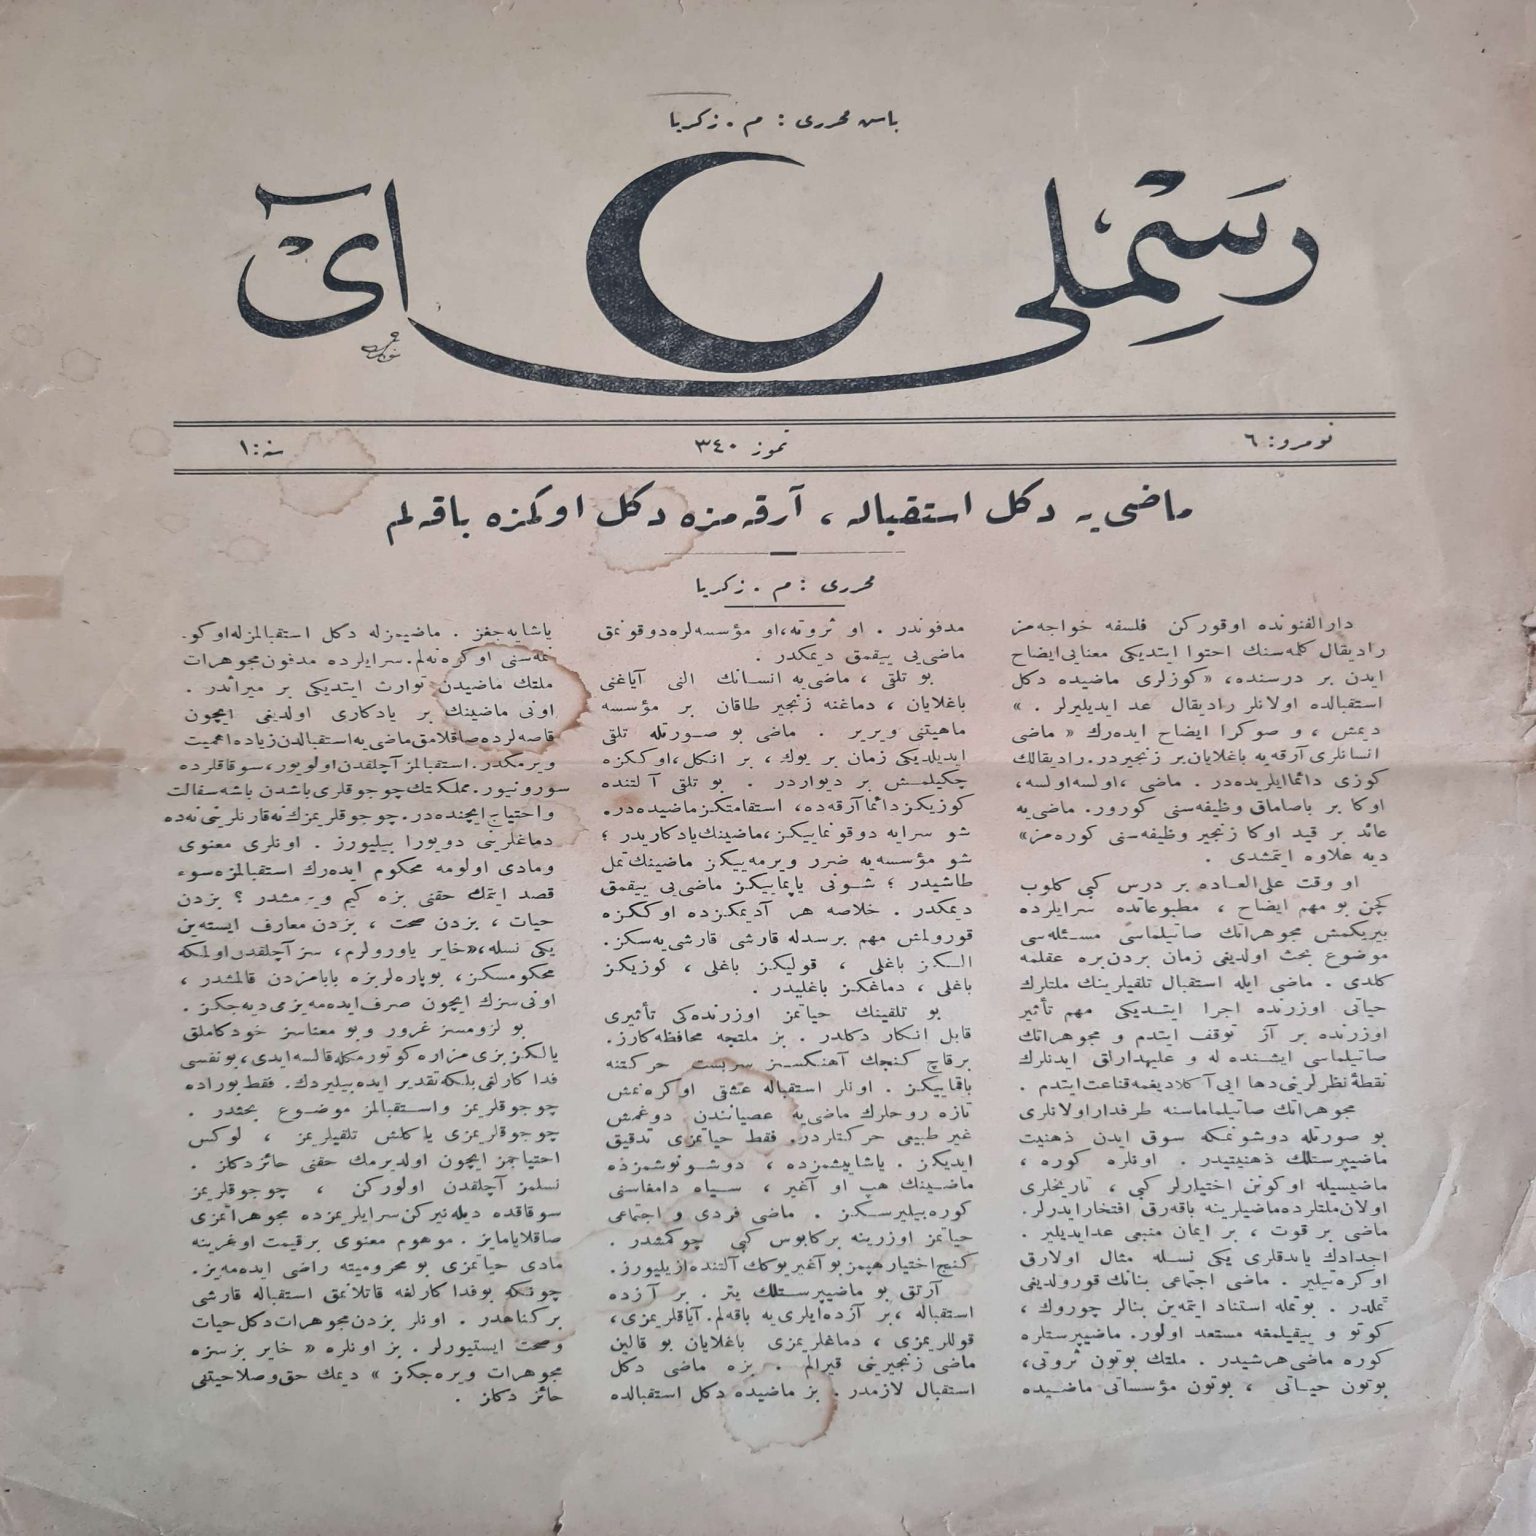 باش محرری : م . زكریا
رسملی آی
نومرو : ٦
تموز ٣٤٠
سنه : ١
ماضی‌یه دكل استقباله ، آرقه‌مزه دكل اوكمزه باقه‌لم
محرری : م . زكریا
دارالفنونده اوقوركن فلسفه خواجه‌مز
رادیقال كلمه‌سنك احتوا ایتدیكی معنایی ایضاح
ایدن بر درسنده، «كوزلری ماضیده دكل
استقبالده اولانلر رادیقال عد ایدیلیرلر . »
دیمش ، و صوكرا ایضاح ایده‌رك « ماضی
انسانلری آرقه‌یه باغلایان بر زنجیردر. رادیقالك
كوزی دائما ایلریده‌در . ماضی ، اولسه اولسه،
اوكا بر باصاماق وظیفه‌سنی كورور. ماضی‌یه
عائد بر قید اوكا زنجیر وظیفه‌سنی كوره‌مز»
دیه علاوه ایتمشدی .
او وقت علی‌العاده بر درس كبی كلوب
كچن بو مهم ایضاح ، مطبوعاتده سرایلرده
بیریكمش مجوهراتك صاتیلماسی مسئله‌سی
موضوع بحث اولدیغی زمان بردن‌بره عقلمه
كلدی . ماضی ایله استقبال تلقیلرینك ملتلرك
حیاتی اوزرنده اجرا ایتدیكی مهم تأثیر
اوزرنده بر آز توقف ایتدم و مجوهراتك
صاتیلماسی ایشنده له و علیهدارلق ایدنلرك
نقطهٔ نظرلرینی دها ایی آكلادیغمه قناعت ایتدم .
مجوهراتك صاتیلماماسنه طرفدار اولانلری
بو صورتله دوشونمكه سوق ایدن ذهنیت
ماضیپرستلك ذهنیتیدر . اونلره كوره ،
ماضیسیله اوكونن اختیارلر كبی ، تاریخلری
اولان ملتلرده ماضیلرینه باقه‌رق افتخار ایدرلر.
ماضی بر قوت ، بر ایمان منبعی عد ایدیلیر .
اجدادك یاپدقلری یكی نسله مثال اولارق
اوكره‌تیلیر . ماضی اجتماعی بنانك قورولدیغی
تملدر . بو تمله استناد ایتمه‌ین بنالر چوروك ،
كوتو و ییقیلمغه مستعد اولور. ماضیپرستلره
كوره ماضی هرشیدر . ملتك بوتون ثروتی،
بوتون حیاتی ، بوتون مؤسساتی ماضیده
مدفوندر . او ثروته، او مؤسسه‌لره دوقونمق
ماضی‌یی ییقمق دیمكدر .
بو تلقی ، ماضی‌یه انسانك النی آیاغنی
باغلایان ، دماغنه زنجیر طاقان بر مؤسسه
ماهیتنی ویریر . ماضی بو صورتله تلقی
ایدیلدیكی زمان بر یوك ، بر انكل، اوككزه
چكیلمش بر دیواردر . بو تلقی آلتنده
كوزیكز دائما آرقه‌ده، استقامتكز ماضیده‌در.
شو سرایه دوقونماییكز، ماضینك یادكاریدر ؛
شو مؤسسه‌یه ضرر ویرمه‌ییكز ماضینك تمل
طاشیدر ؛ شونی یاپماییكز ماضی‌یی ییقمق
دیمكدر . خلاصه هر آدیمكزده اوككزه
قورولمش مهم برسدله قارشی قارشی‌یه‌سكز.
الكز باغلی ، قولیكز باغلی ، كوزیكز
باغلی ، دماغكز باغلیدر .
بو تلقینك حیاتمز اوزرنده‌كی تأثیری
قابل انكار دكلدر . بز ملتجه محافظه‌كارز.
برقاچ كنجك آهنكسز سربست حركتنه
باقماییكز . اونلر استقباله عشقی اوكره‌نمش
تازه روحلرك ماضی‌یه عصیانندن دوغمش
غیر طبیعی حركتلردر. فقط حیاتمزی تدقیق
ایدیكز . یاشاییشمزده ، دوشونوشمزده
ماضینك هپ او آغیر ، سیاه دامغاسنی
كوره‌بیلیرسكز . ماضی فردی و اجتماعی
حیاتمز اوزرینه بر كابوس كبی چوكمشدر .
كنج اختیار هپمز بو آغیر یوكك آلتنده ازیلیورز.
آرتق بو ماضیپرستلك یتر . بر آزده
استقباله ، بر آزده ایلری‌یه باقه‌لم. آیاقلریمزی،
قوللریمزی ، دماغلریمزی باغلایان بو قالین
ماضی زنجیرینی قیرالم . بزه ماضی دكل
استقبال لازمدر . بز ماضیده دكل استقبالده
یاشایه‌جغز . ماضیمزله دكل استقبالمزله اوكو-
نمه‌سنی اوكره‌نه‌لم. سرایلرده مدفون مجوهرات
ملتك ماضیدن توارث ایتدیكی بر میراثدر .
اونی ماضینك بر یادكاری اولدیغی ایچون
قاصه‌لرده صاقلامق ماضی‌یه استقبالدن زیاده اهمیت
ویرمكدر. استقبالمز آچلقدن اولویور، سوقاقلرده
سورونیور. مملكتك چوجوقلری باشدن باشه سفالت
و احتیاج ایچنده‌در. چوجوقلریمزك نه قارنلرینی نه‌ده
دماغلرینی دویورا بیلیورز . اونلری معنوی
ومادی اولومه محكوم ایده‌رك استقبالمزه سوء
قصد ایتمك حقنی بزه كیم ویرمشدر ؟ بزدن
حیات ، بزدن صحت ، بزدن معارف ایسته‌ین
یكی نسله، «خایر یاورولرم، سز آچلقدن اولمكه
محكومسكز، بو پاره‌لر بزه بابامزدن قالمشدر ،
اونی سزك ایچون صرف ایده‌مه‌یز می دیه‌جكز .
بو لزومسز غرور و بو معناسز خودكاملق
یالكز بزی مزاره كوتورمكله قالسه ایدی، بو نفسی
فداكارلغی بلكه تقدیر ایده‌بیلیردك. فقط بوراده
چوجوقلریمز و استقبالمز موضوع بحثدر .
چوجوقلریمزی یاكلش تلقیلریمز ، لوكس
احتیاجمز ایچون اولدیرمك حقنی حائز دكلز .
نسلمز آچلقدن اولوركن ، چوجوقلریمز
سوقاقده دیله‌نیركن سرایلریمزده مجوهراتمزی
صاقلایامایز . موهوم معنوی بر قیمت اوغرینه
مادی حیاتمزی بو محرومیته راضی ایده‌مه‌یز.
چونكه بو فداكارلغه قاتلانمق استقباله قارشی
بر كناهدر . اونلر بزدن مجوهرات دكل حیات
وصحت ایستیورلر . بز اونلره « خایر بز سزه
مجوهرات ویره‌جكز » دیمك حق و صلاحیتنی
حائز دكلز .